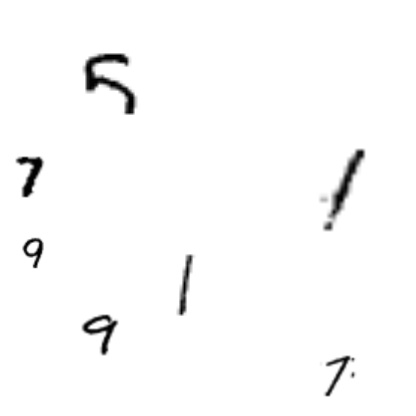 5
7
1
9
1
9
7